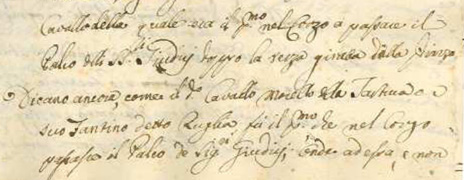 Cavallo della quale era il p.mo nel Corzo a passare il
Palco delli SS.ri Giudici dopo la terza girata dalla
Dicano ancora, come il d.o Cavallo Morello della Tartuca e
suo Fantino detto fù il p.mo che nel Corzo
passasse il Palco de Sig.ri Giudici, onde ad essa, e non